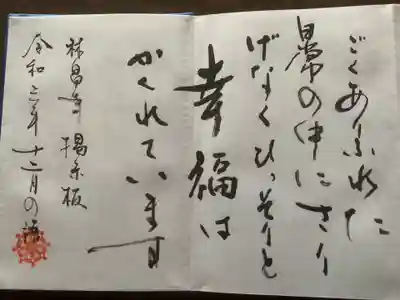 ごくあふれた
日常の中にさり
げなくひっそりと
幸福は
かくれています
林昌寺 掲示板
令和三年 十二月の語